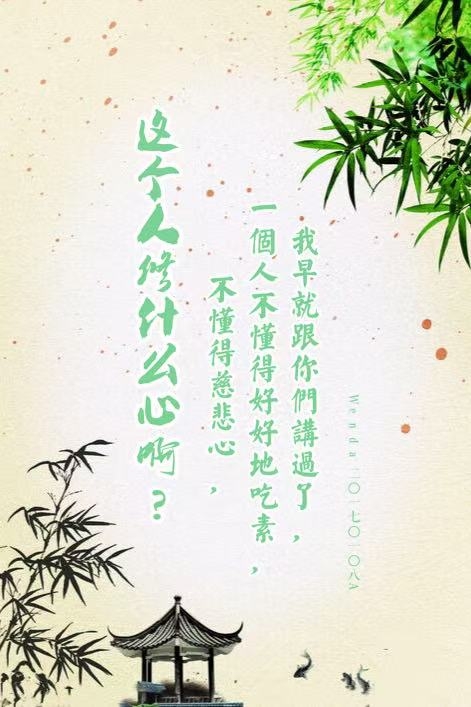 我早就跟你們講過了，
一個人不懂得好好地吃素，
不懂得慈悲心，
这个人修什么心啊？
Wenda二〇一七〇一〇八A